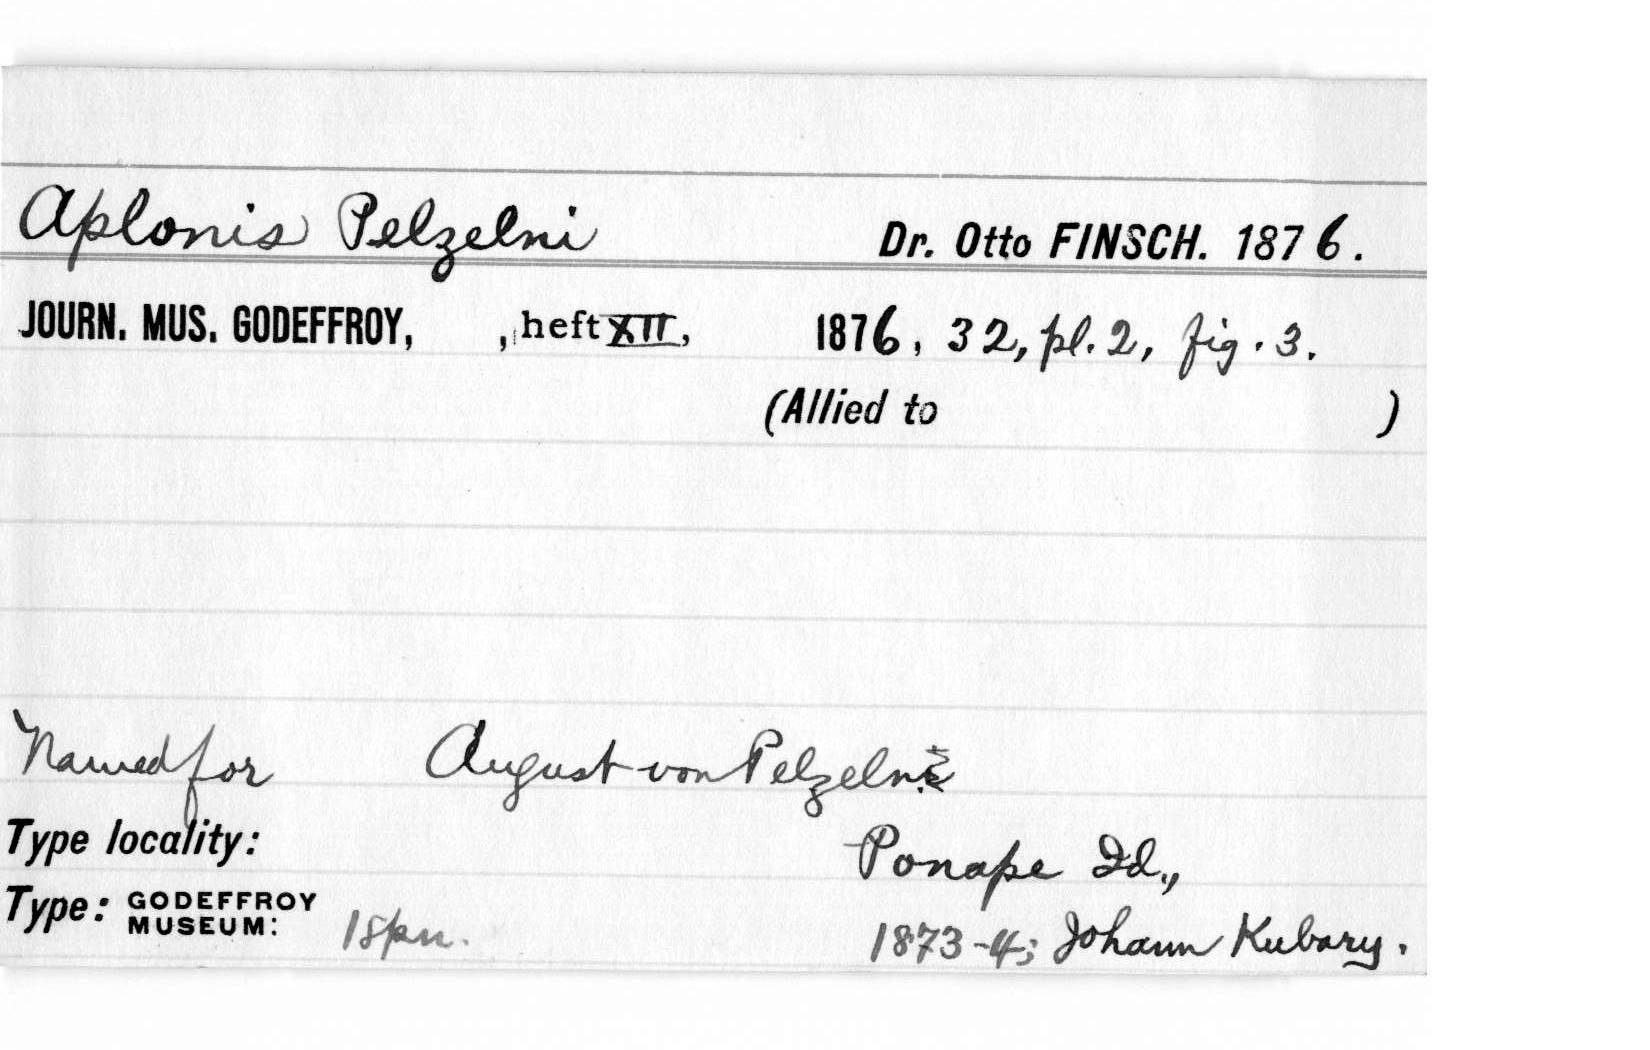 Aplonis Pelzelni Dr. Otto FINSCH. 1876.
JOURN. MUS. GODEFFROY, , heft XII, 1876, 32, pl. 2, fig. 3.
(Allied to )
Named for August von Pelzeln
Type locality: Ponape Id.,
Type: GODEFFROY MUSEUM: 1spn. 1873-4; Johann Kubary.